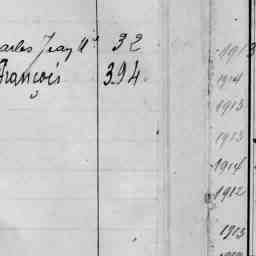 Charles Jean 32
François 394
1913
1914
1913
1913
1914
1912
1913